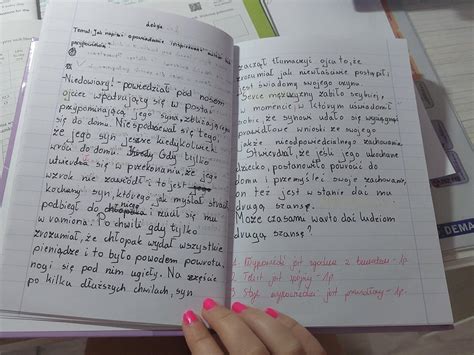 Lekcja
Temat: Jak napisać opowiadanie inspirowane
przypowieścią
-Niedowiary! - powiedział pod nosem
ojciec wpatrujący się w postać
przypominającą jego syna, zbliżającą
się do domu. Nie spodziewał się tego,
że jego syn jeszcze kiedykolwiek
wróci do domu. Gdy tylko
utwierdził się w przekonaniu, że jego
wzrok nie zawodzi i to jest
kochany syn, którego jak myślał stracił
podbiegł do niego i rzucił się mu
w ramiona. Po chwili gdy tylko
zrozumiał, że chłopak wydał wszystkie
pieniądze i to było powodem powrotu,
nogi się pod nim ugięły. Na szczęście
po kilku dłuższych chwilach, syn
zaczął tłumaczyć ojcu to, że
zrozumiał jak niewłaściwie postąpił i
jest świadomy swojego winy.
Serce mężczyzny zabiło szybciej,
w momencie, w którym uświadomił
sobie, że synowi udało się wyciągnąć
prawidłowe wnioski ze swojego
jakże nieodpowiedzialnego zachowania.
Stwierdził, że jeśli jego ukochane
dziecko, postanowiło powrócić do
domu i przemyśleć swoje zachowanie,
on też jest w stanie dać mu
drugą szansę.
Może czasami warto dać ludziom
drugą szansę?
1. Wypowiedź jest zgodna z tematem - 1p
2. Tekst jest spójny - 1p
3. Styl wypowiedzi jest prawidłowy - 1p